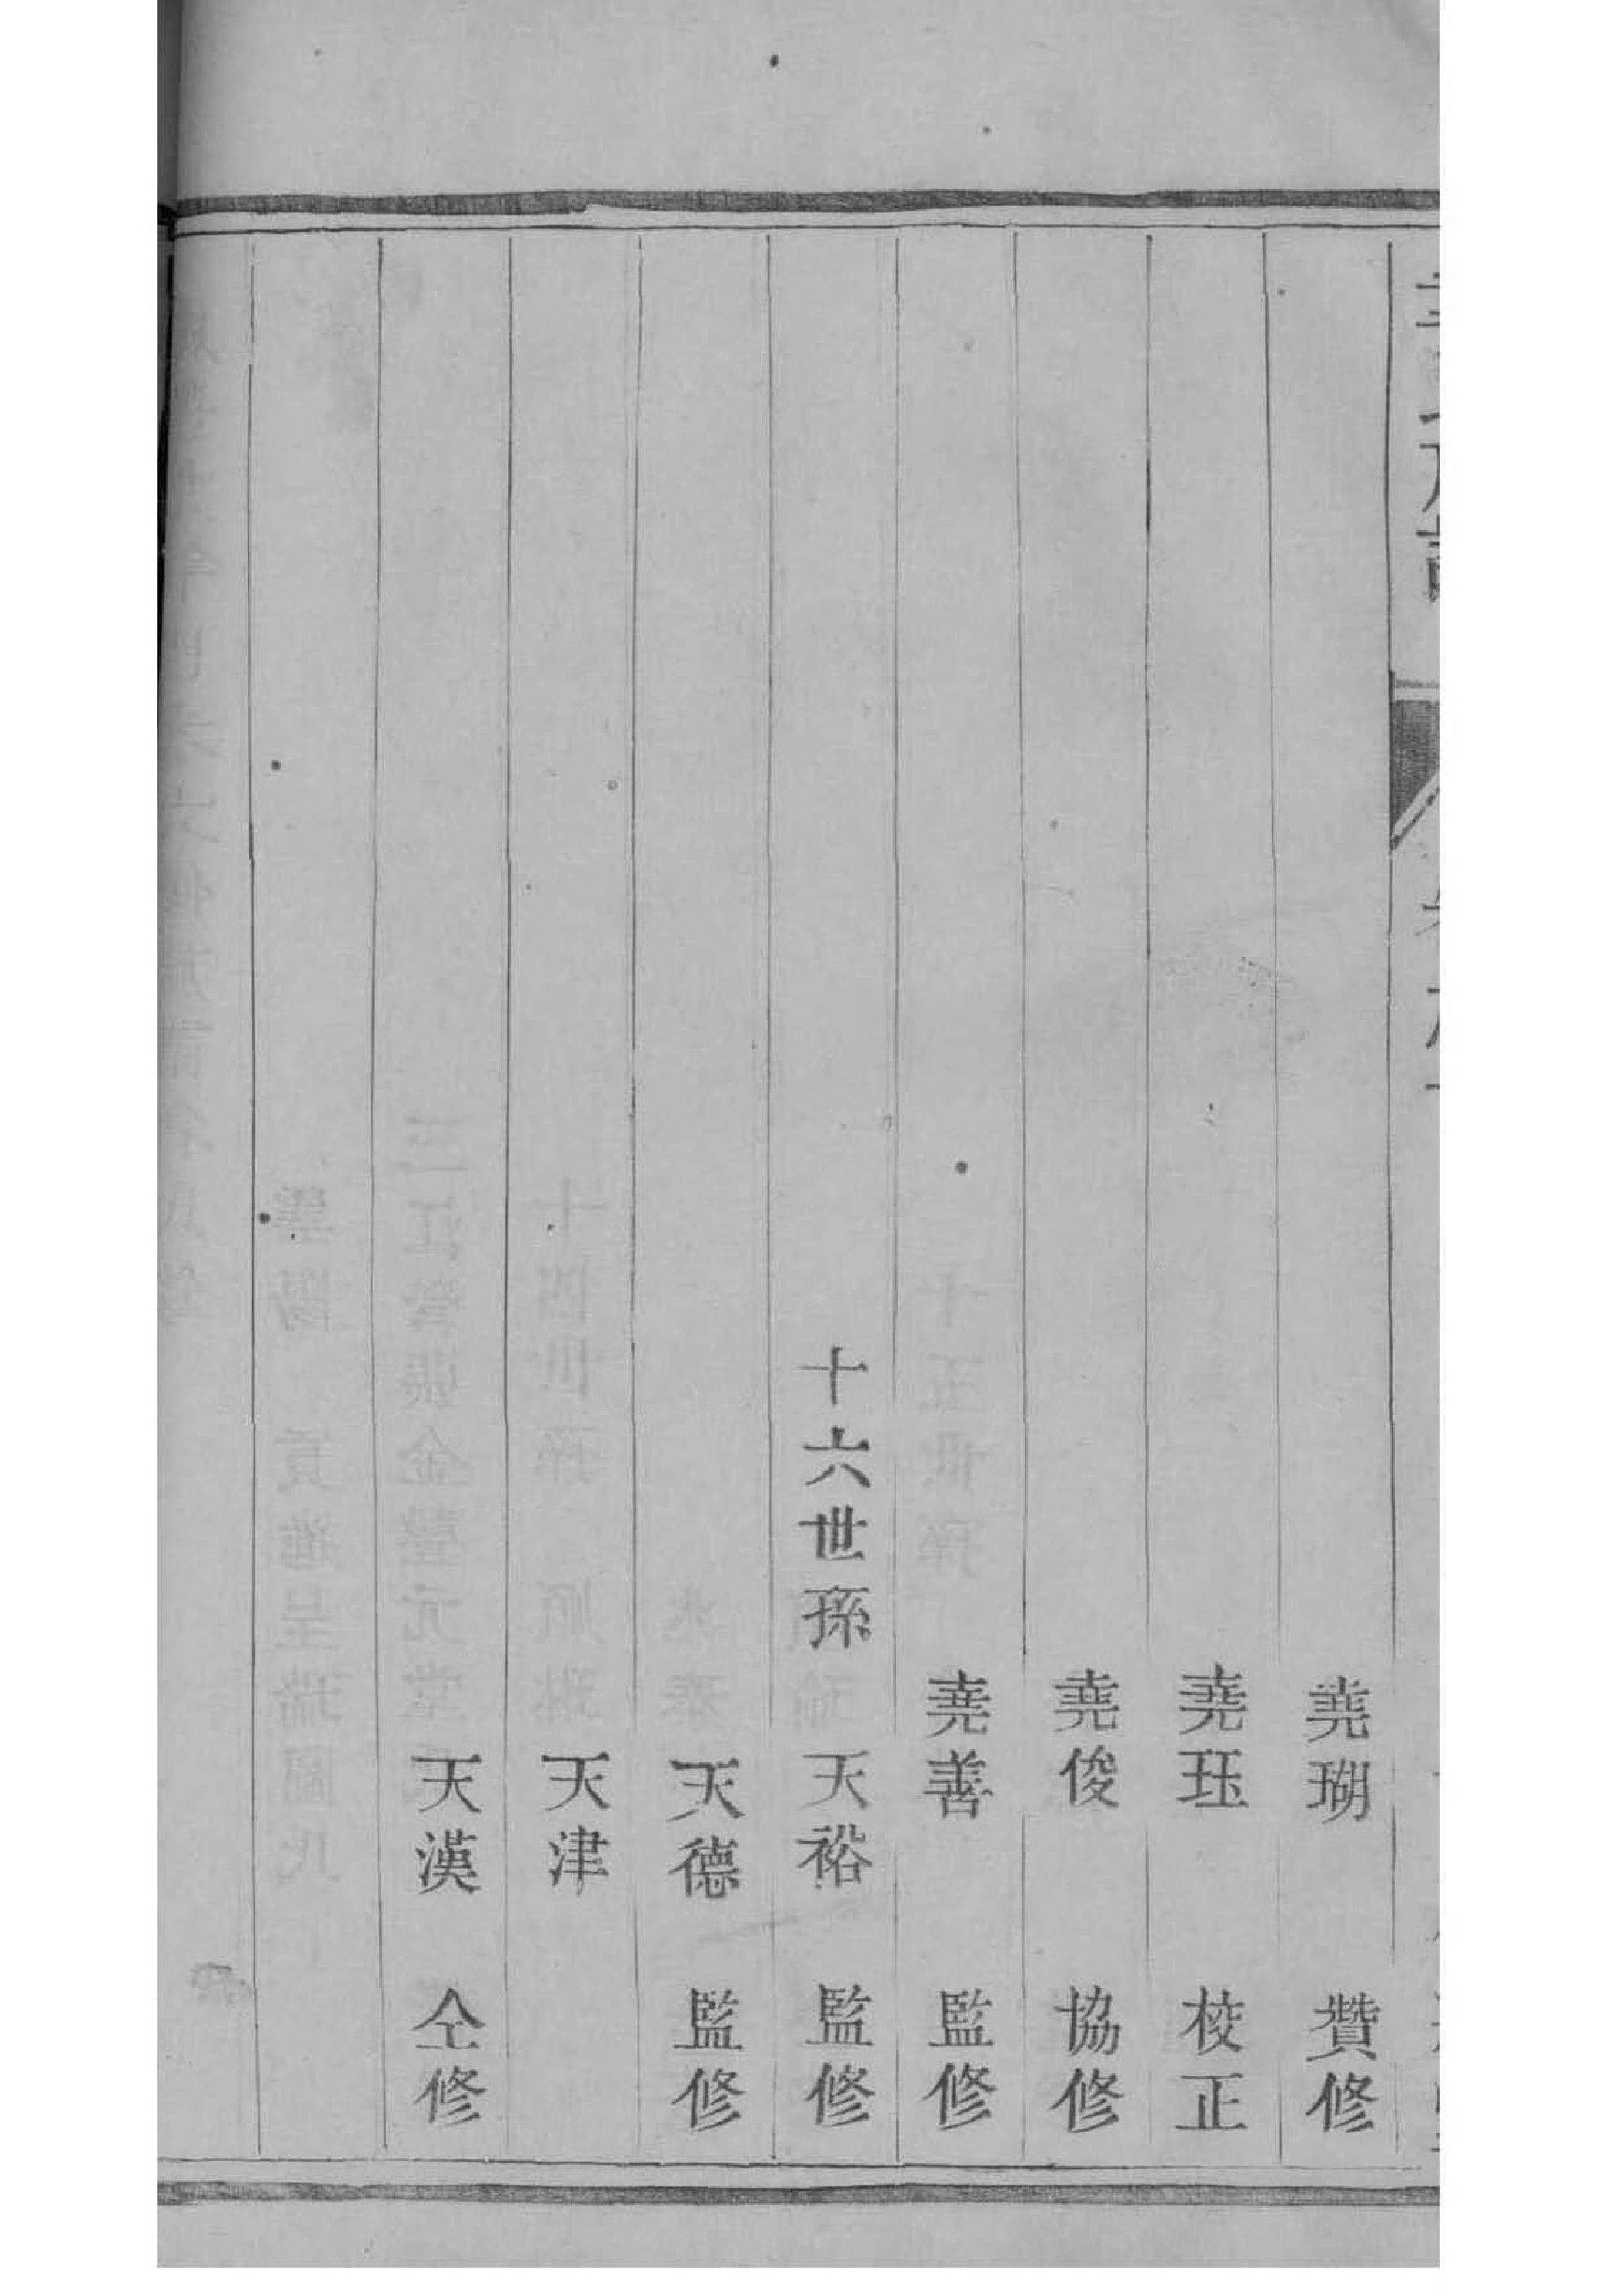 堯瑚　贊修
堯珏　校正
堯俊　協修
堯善　監修
十六世孫　天裕　監修
天德　監修
天津
天漢　仝修